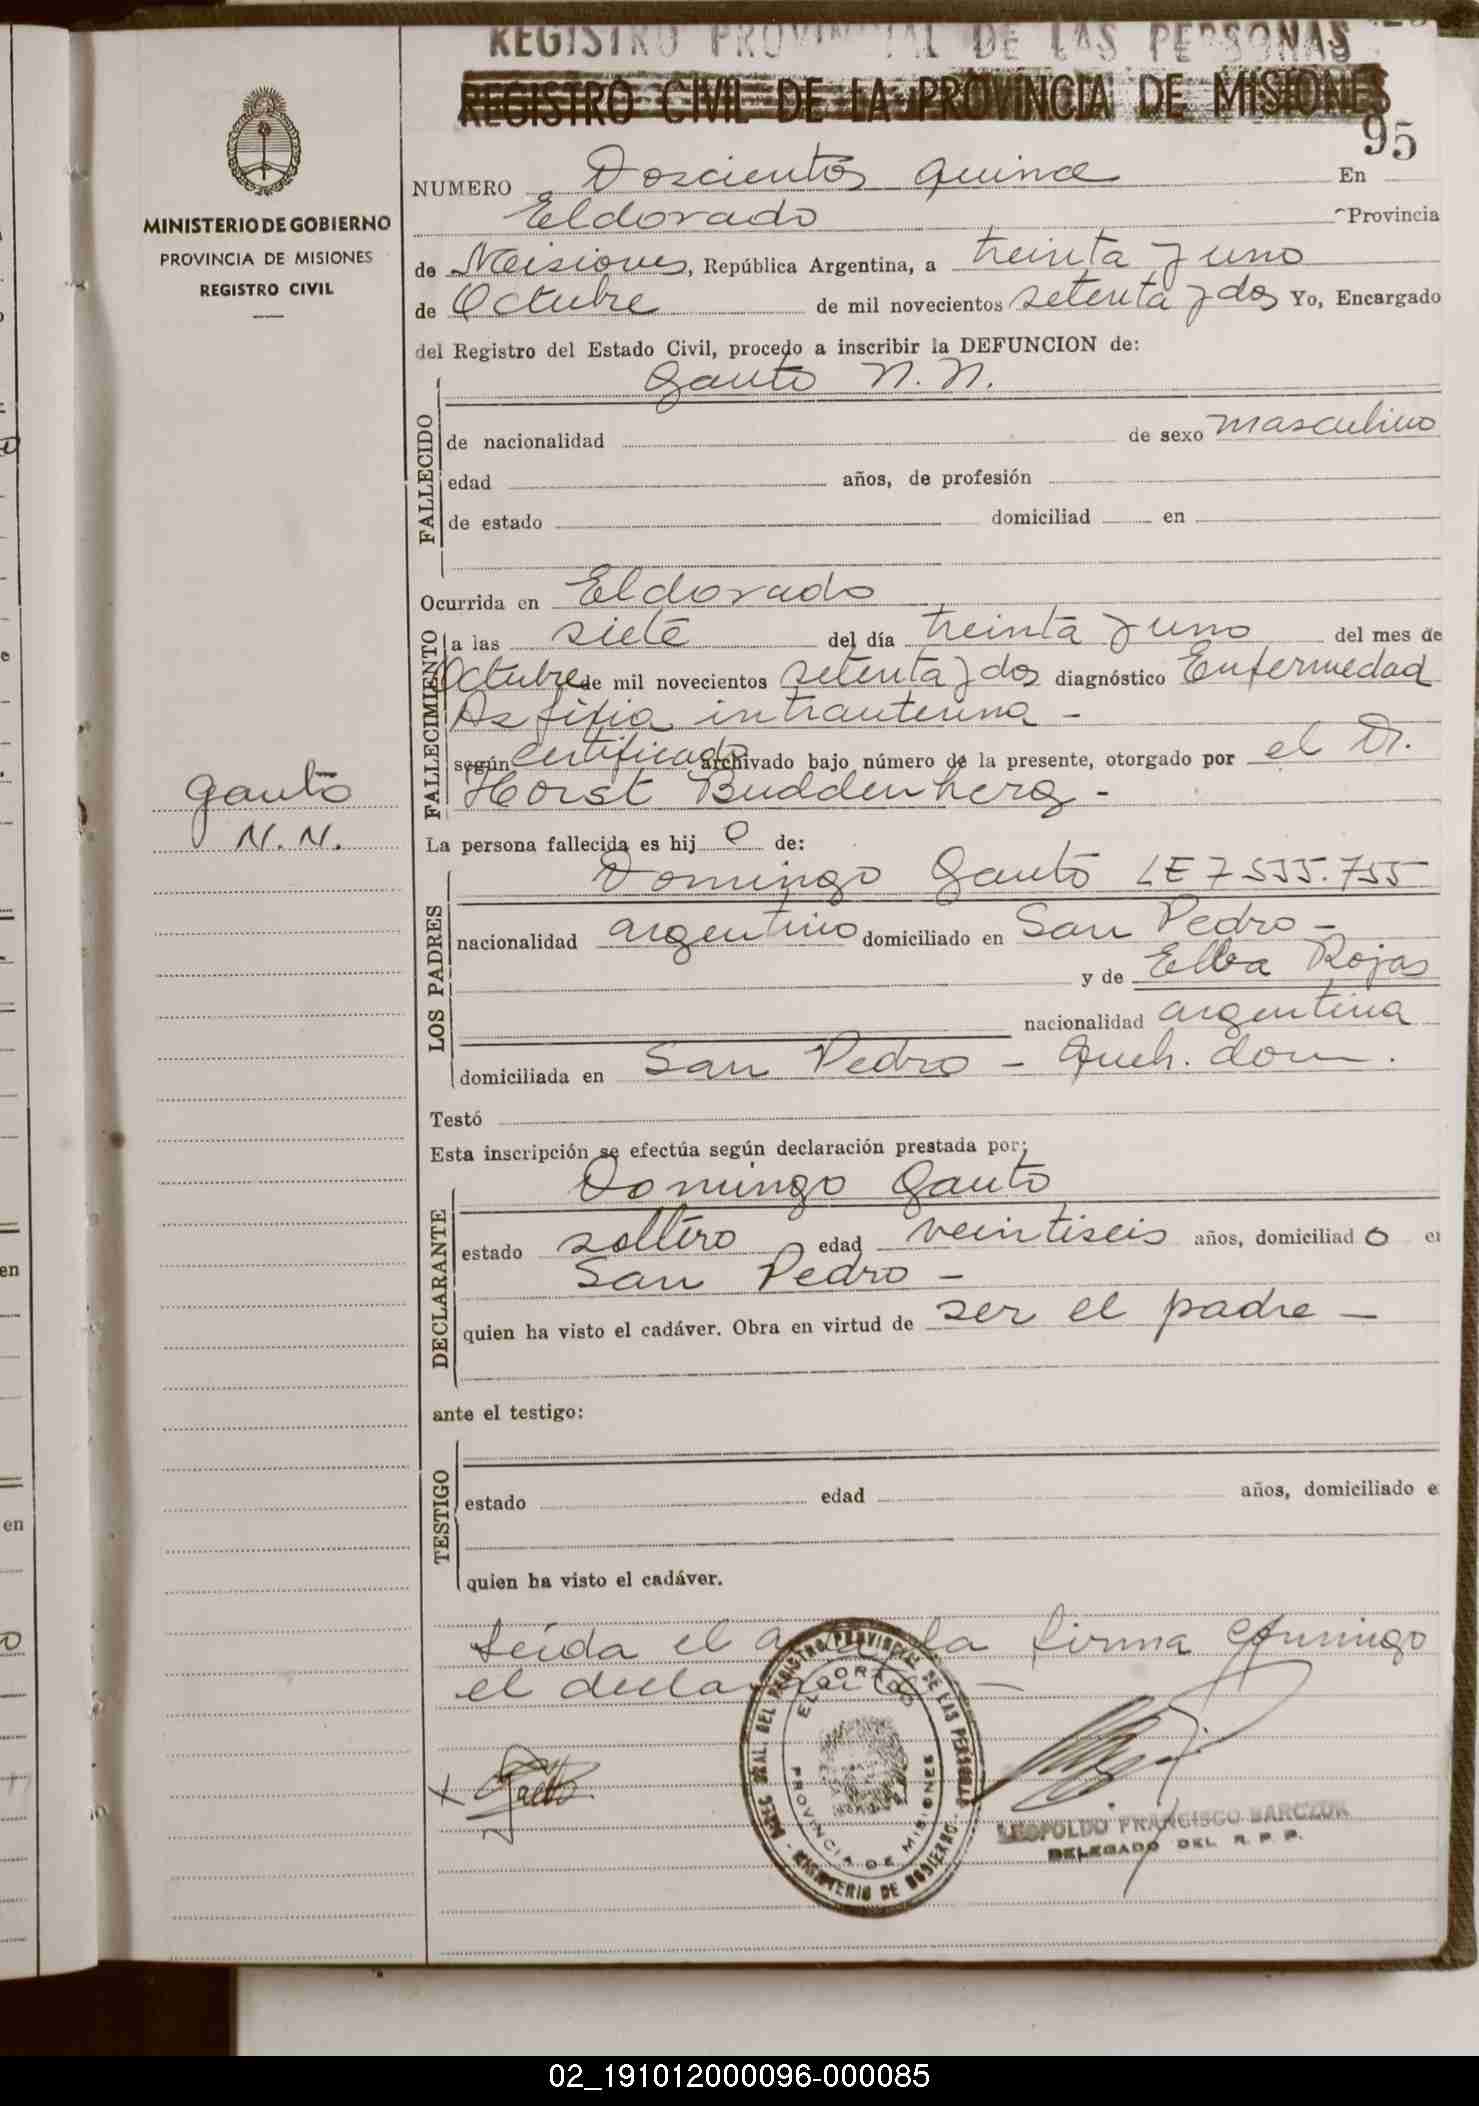 REGISTRO PROVINCIAL DE LAS PERSONAS
REGISTRO CIVIL DE LA PROVINCIA DE MISIONES
95
MINISTERIO DE GOBIERNO
PROVINCIA DE MISIONES
REGISTRO CIVIL
NUMERO Doscientos quince En
Eldorado Provincia
de Misiones, República Argentina, a treinta y uno
de Octubre de mil novecientos setenta y dos Yo, Encargado
del Registro del Estado Civil, procedo a inscribir la DEFUNCION de:
Gauto N.N.
FALLECIDO
de nacionalidad de sexo masculino
edad años, de profesión
de estado domiciliad en
Ocurrida en Eldorado
FALLECIMIENTO
a las siete del día treinta y uno del mes de
Octubre de mil novecientos setenta y dos diagnóstico Enfermedad
Asfixia intrauterina -
según certificado archivado bajo número de la presente, otorgado por el Dr.
Horst Buddenberg -
Gauto
N.N.
La persona fallecida es hij o de:
LOS PADRES
Domingo Gauto LE 7535.755
nacionalidad argentino domiciliado en San Pedro -
y de Elba Rojas
nacionalidad argentina
domiciliada en San Pedro - Queh. dom.
Testó
Esta inscripción se efectúa según declaración prestada por:
DECLARANTE
Domingo Gauto
estado soltero edad veintiseis años, domiciliad o e
San Pedro -
quien ha visto el cadáver. Obra en virtud de ser el padre -
ante el testigo:
TESTIGO
estado edad años, domiciliado e
quien ha visto el cadáver.
Leída el acta la firma conmigo
el declarante -
DIREC. GRAL. DEL REGISTRO PROVINCIAL DE LAS PERSONAS - MINISTERIO DE GOBIERNO
ELDORADO
PROVINCIA DE MISIONES
x Gauto
LEOPOLDO FRANCISCO BARCZUK
DELEGADO DEL R. P. P.
02_191012000096-000085